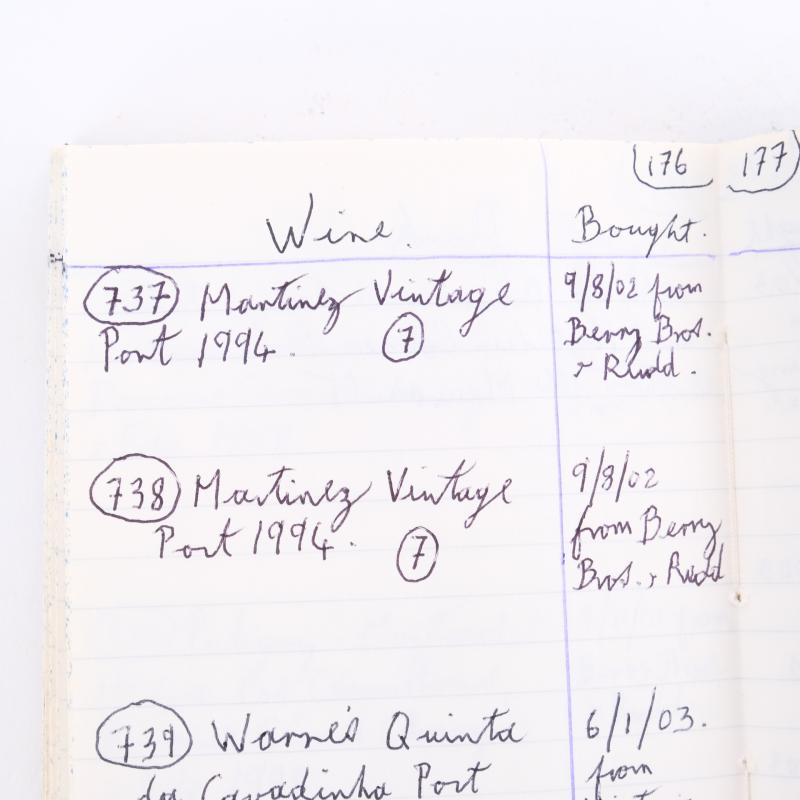 176 177
Wine. Bought.
737 Martinez Vintage
Port 1994. 7
9/8/02 from
Berry Bros.
& Rudd.
738 Martinez Vintage
Port 1994. 7
9/8/02
from Berry
Bros. & Rudd
739 Warre's Quinta
da Cavadinha Port
6/1/03.
from